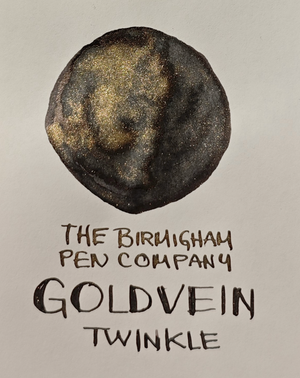 THE BIRMIGHAM
PEN COMPANY
GOLDVEIN
TWINKLE